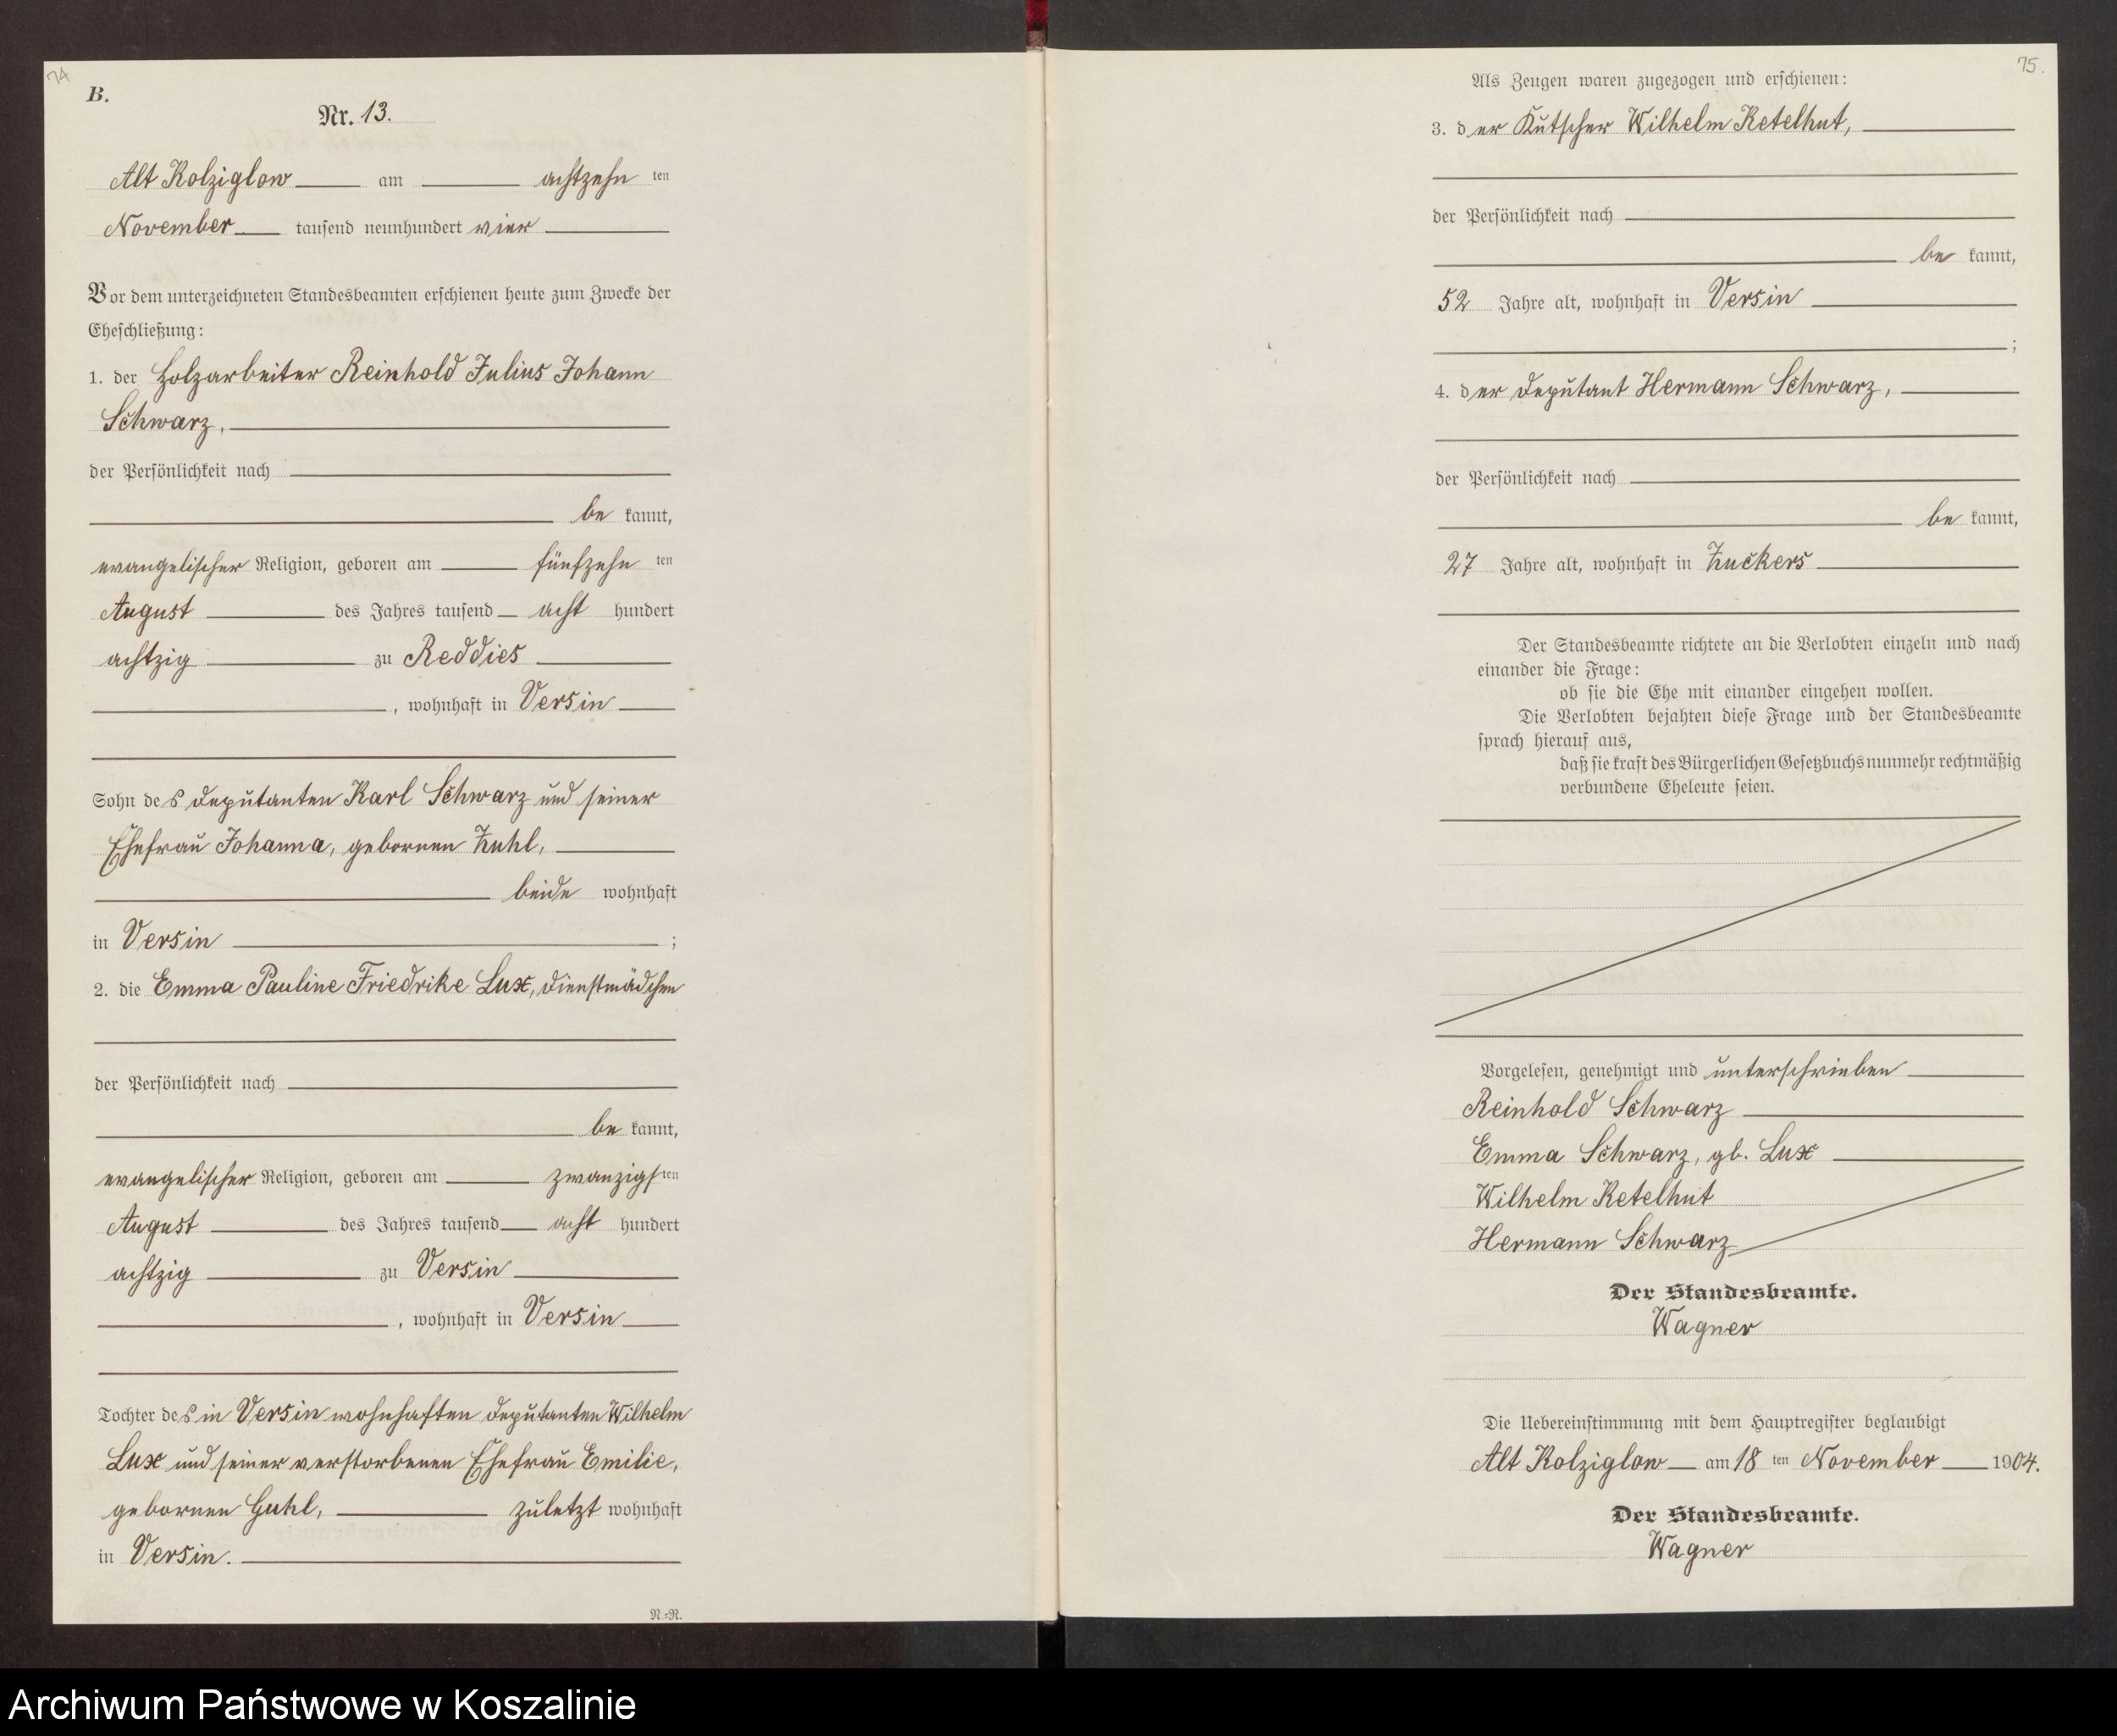 74
B.
Nr. 13.
Alt Kolziglow am achtzehn ten
November tausend neunhundert vier
Vor dem unterzeichneten Standesbeamten erschienen heute zum Zwecke der
Eheschließung:
1. der Holzarbeiter Reinhold Julius Johann
Schwarz,
der Persönlichkeit nach
be kannt,
evangelischer Religion, geboren am fünfzehn ten
August des Jahres tausend acht hundert
achtzig zu Reddies
, wohnhaft in Versin
Sohn des Deputanten Karl Schwarz und seiner
Ehefrau Johanna, gebornen Zuhl,
beide wohnhaft
in Versin ;
2. die Emma Pauline Friedrike Lux, Dienstmädchen
der Persönlichkeit nach
be kannt,
evangelischer Religion, geboren am zwanzigsten
August des Jahres tausend acht hundert
achtzig zu Versin
, wohnhaft in Versin
Tochter des in Versin wohnhaften Deputanten Wilhelm
Lux und seiner verstorbenen Ehefrau Emilie,
gebornen Guhl, zuletzt wohnhaft
in Versin.
N.-N.
75.
Als Zeugen waren zugezogen und erschienen:
3. der Kutscher Wilhelm Ketelhut,
der Persönlichkeit nach
be kannt,
52 Jahre alt, wohnhaft in Versin
;
4. der Deputant Hermann Schwarz,
der Persönlichkeit nach
be kannt,
27 Jahre alt, wohnhaft in Zuckers
Der Standesbeamte richtete an die Verlobten einzeln und nach
einander die Frage:
ob sie die Ehe mit einander eingehen wollen.
Die Verlobten bejahten diese Frage und der Standesbeamte
sprach hierauf aus,
daß sie kraft des Bürgerlichen Gesetzbuchs nunmehr rechtmäßig
verbundene Eheleute seien.
Vorgelesen, genehmigt und unterschrieben
Reinhold Schwarz
Emma Schwarz, gb. Lux
Wilhelm Ketelhut
Hermann Schwarz
Der Standesbeamte.
Wagner
Die Uebereinstimmung mit dem Hauptregister beglaubigt
Alt Kolziglow am 18 ten November 1904.
Der Standesbeamte.
Wagner
Archiwum Państwowe w Koszalinie